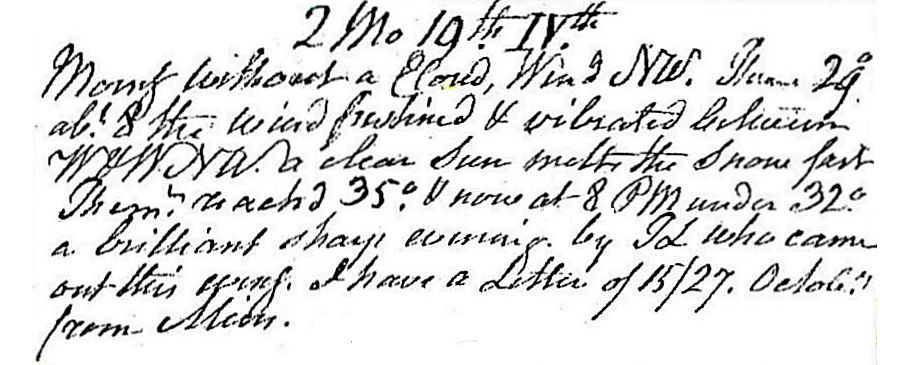 2 Mo 19th IVth
Morng without a Cloud, Wind NW. Therm 29°
abt 8 the wind freshined & vibrated between
W & W.NW. a clear Sun melts the Snow fast
Therm.r reachd 35°. & now at 8 PM under 32°
a brilliant sharp evening. by Td who came
out this eveng. I have a Letter of 15/27. Octobr.
from